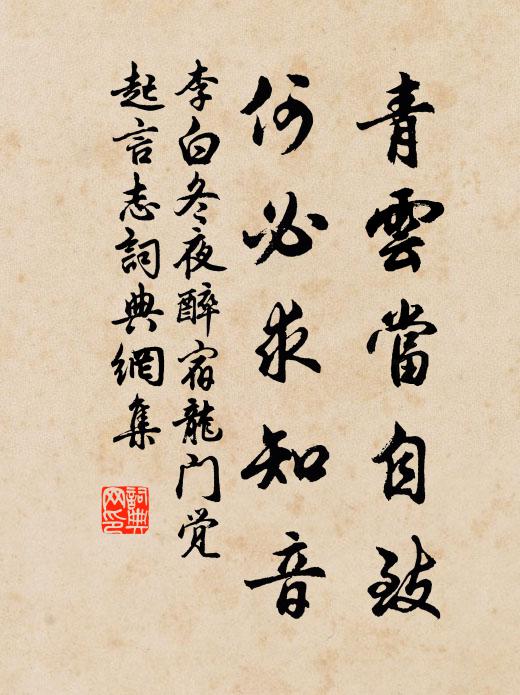 青雲當自致
何必求知音
李白冬夜醉宿龍门觉
起言志詞典網集
詞典网印